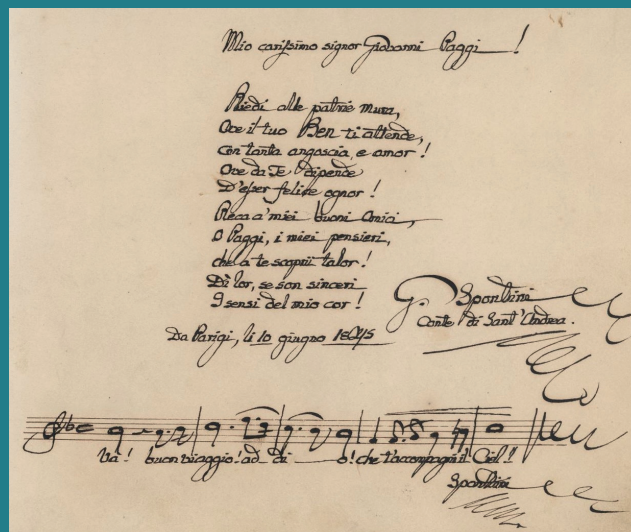 Mio carissimo signor Giovanni Paggi!
Riedi alle patrie mura,
Ove il tuo Ben ti attende,
Con tanta angoscia, e amor!
Ove da Te dipende
D'esser felice ognor!
Reca a' miei buoni Amici,
O Paggi, i miei pensieri,
che a te scoprii talor!
Dì lor, se son sinceri
I sensi del mio cor!
G. Spontini
Conte di Sant'Andrea.
Da Parigi, li 10 giugno 1845
Va! buon viaggio! ad di o! che t'accompagni il Ciel!!
Spontini